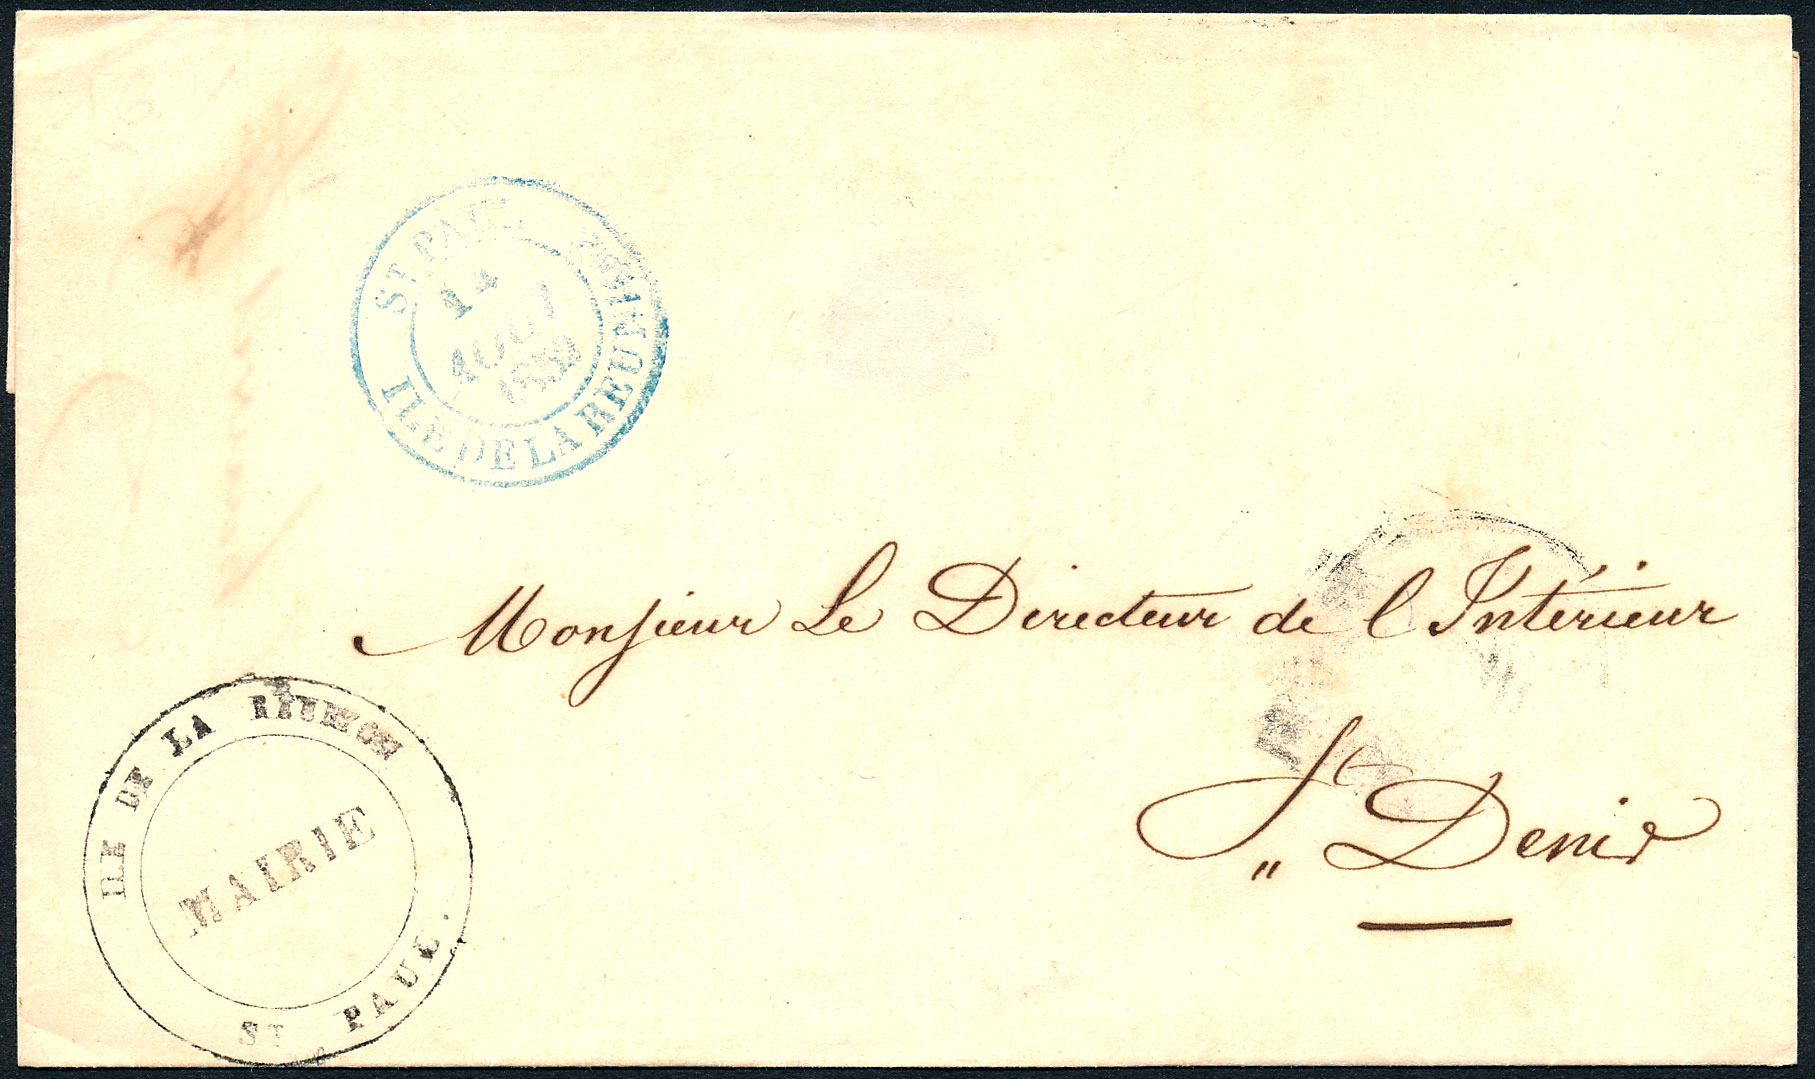 ST. PAUL
14
AOUT
1852
ILE DE LA REUNION
Monsieur Le Directeur de l'Intérieur
St Denis
ILE DE LA RÉUNION
MAIRIE
ST PAUL.